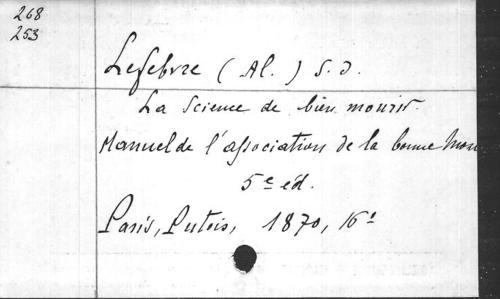 268
253
Lefebvre (Al.) S. J.
La Science de bien mourir.
Manuel de l'association de la bonne Mou
5e éd.
Paris, Putois, 1870, 16°